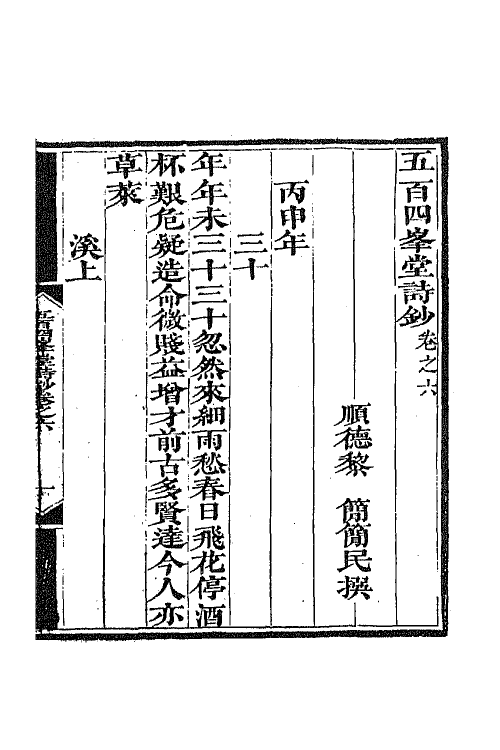 五百四峯堂詩鈔卷之六
順德黎　簡簡民撰
丙申年
三十
年年未三十三十忽然來細雨愁春日飛花停酒
杯艱危疑造命微賤益增才前古多賢達今人亦
草萊
溪上
五百四峯堂詩鈔卷之六
一